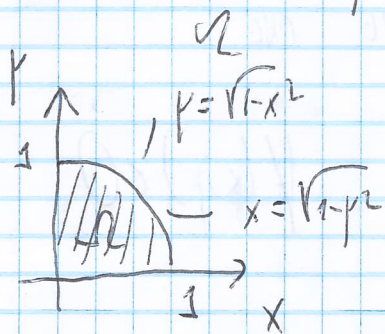 Ω
y
y = √1-x²
1
x = √1-y²
Ω
1
x